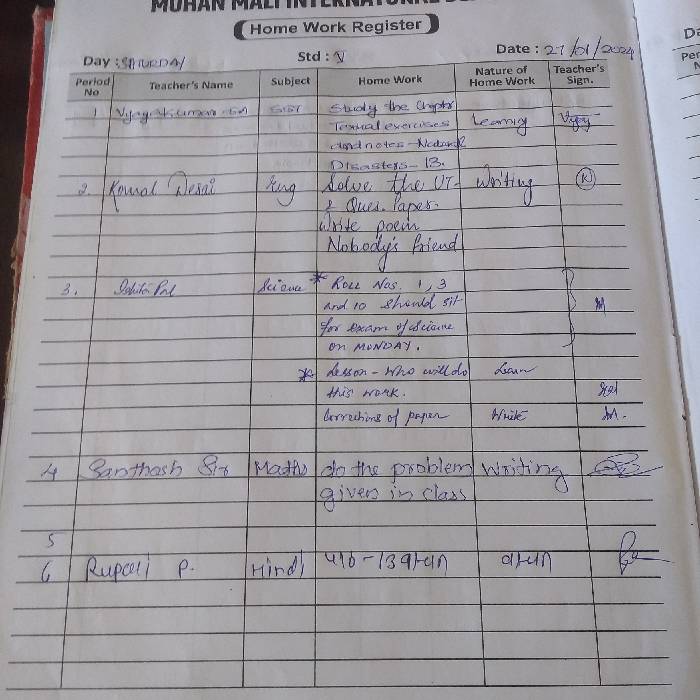 MOHAN MALI INTERNATIONAL
Home Work Register
Day : SATURDAY Std : V Date : 27/01/2024
Period No Teacher's Name Subject Home Work Nature of Home Work Teacher's Sign.
1 Vijayakumar SST Study the Chapter
Textual exercises Learning Vijay
and notes - Natural
Disasters - 13.
2. Komal Desai Eng Solve the UT- Writing
2 Ques. Paper.
Write poem
Nobody's friend
3. Ishita Pal Science * Roll Nos. 1, 3
and 10 should sit
for exam of Science
on MONDAY.
* Lesson - Who will do Learn
this work.
Corrections of paper Write
4 Santhosh Sir Maths do the problem Writing
given in class
5
6 Rupali P. Hindi पाठ-13